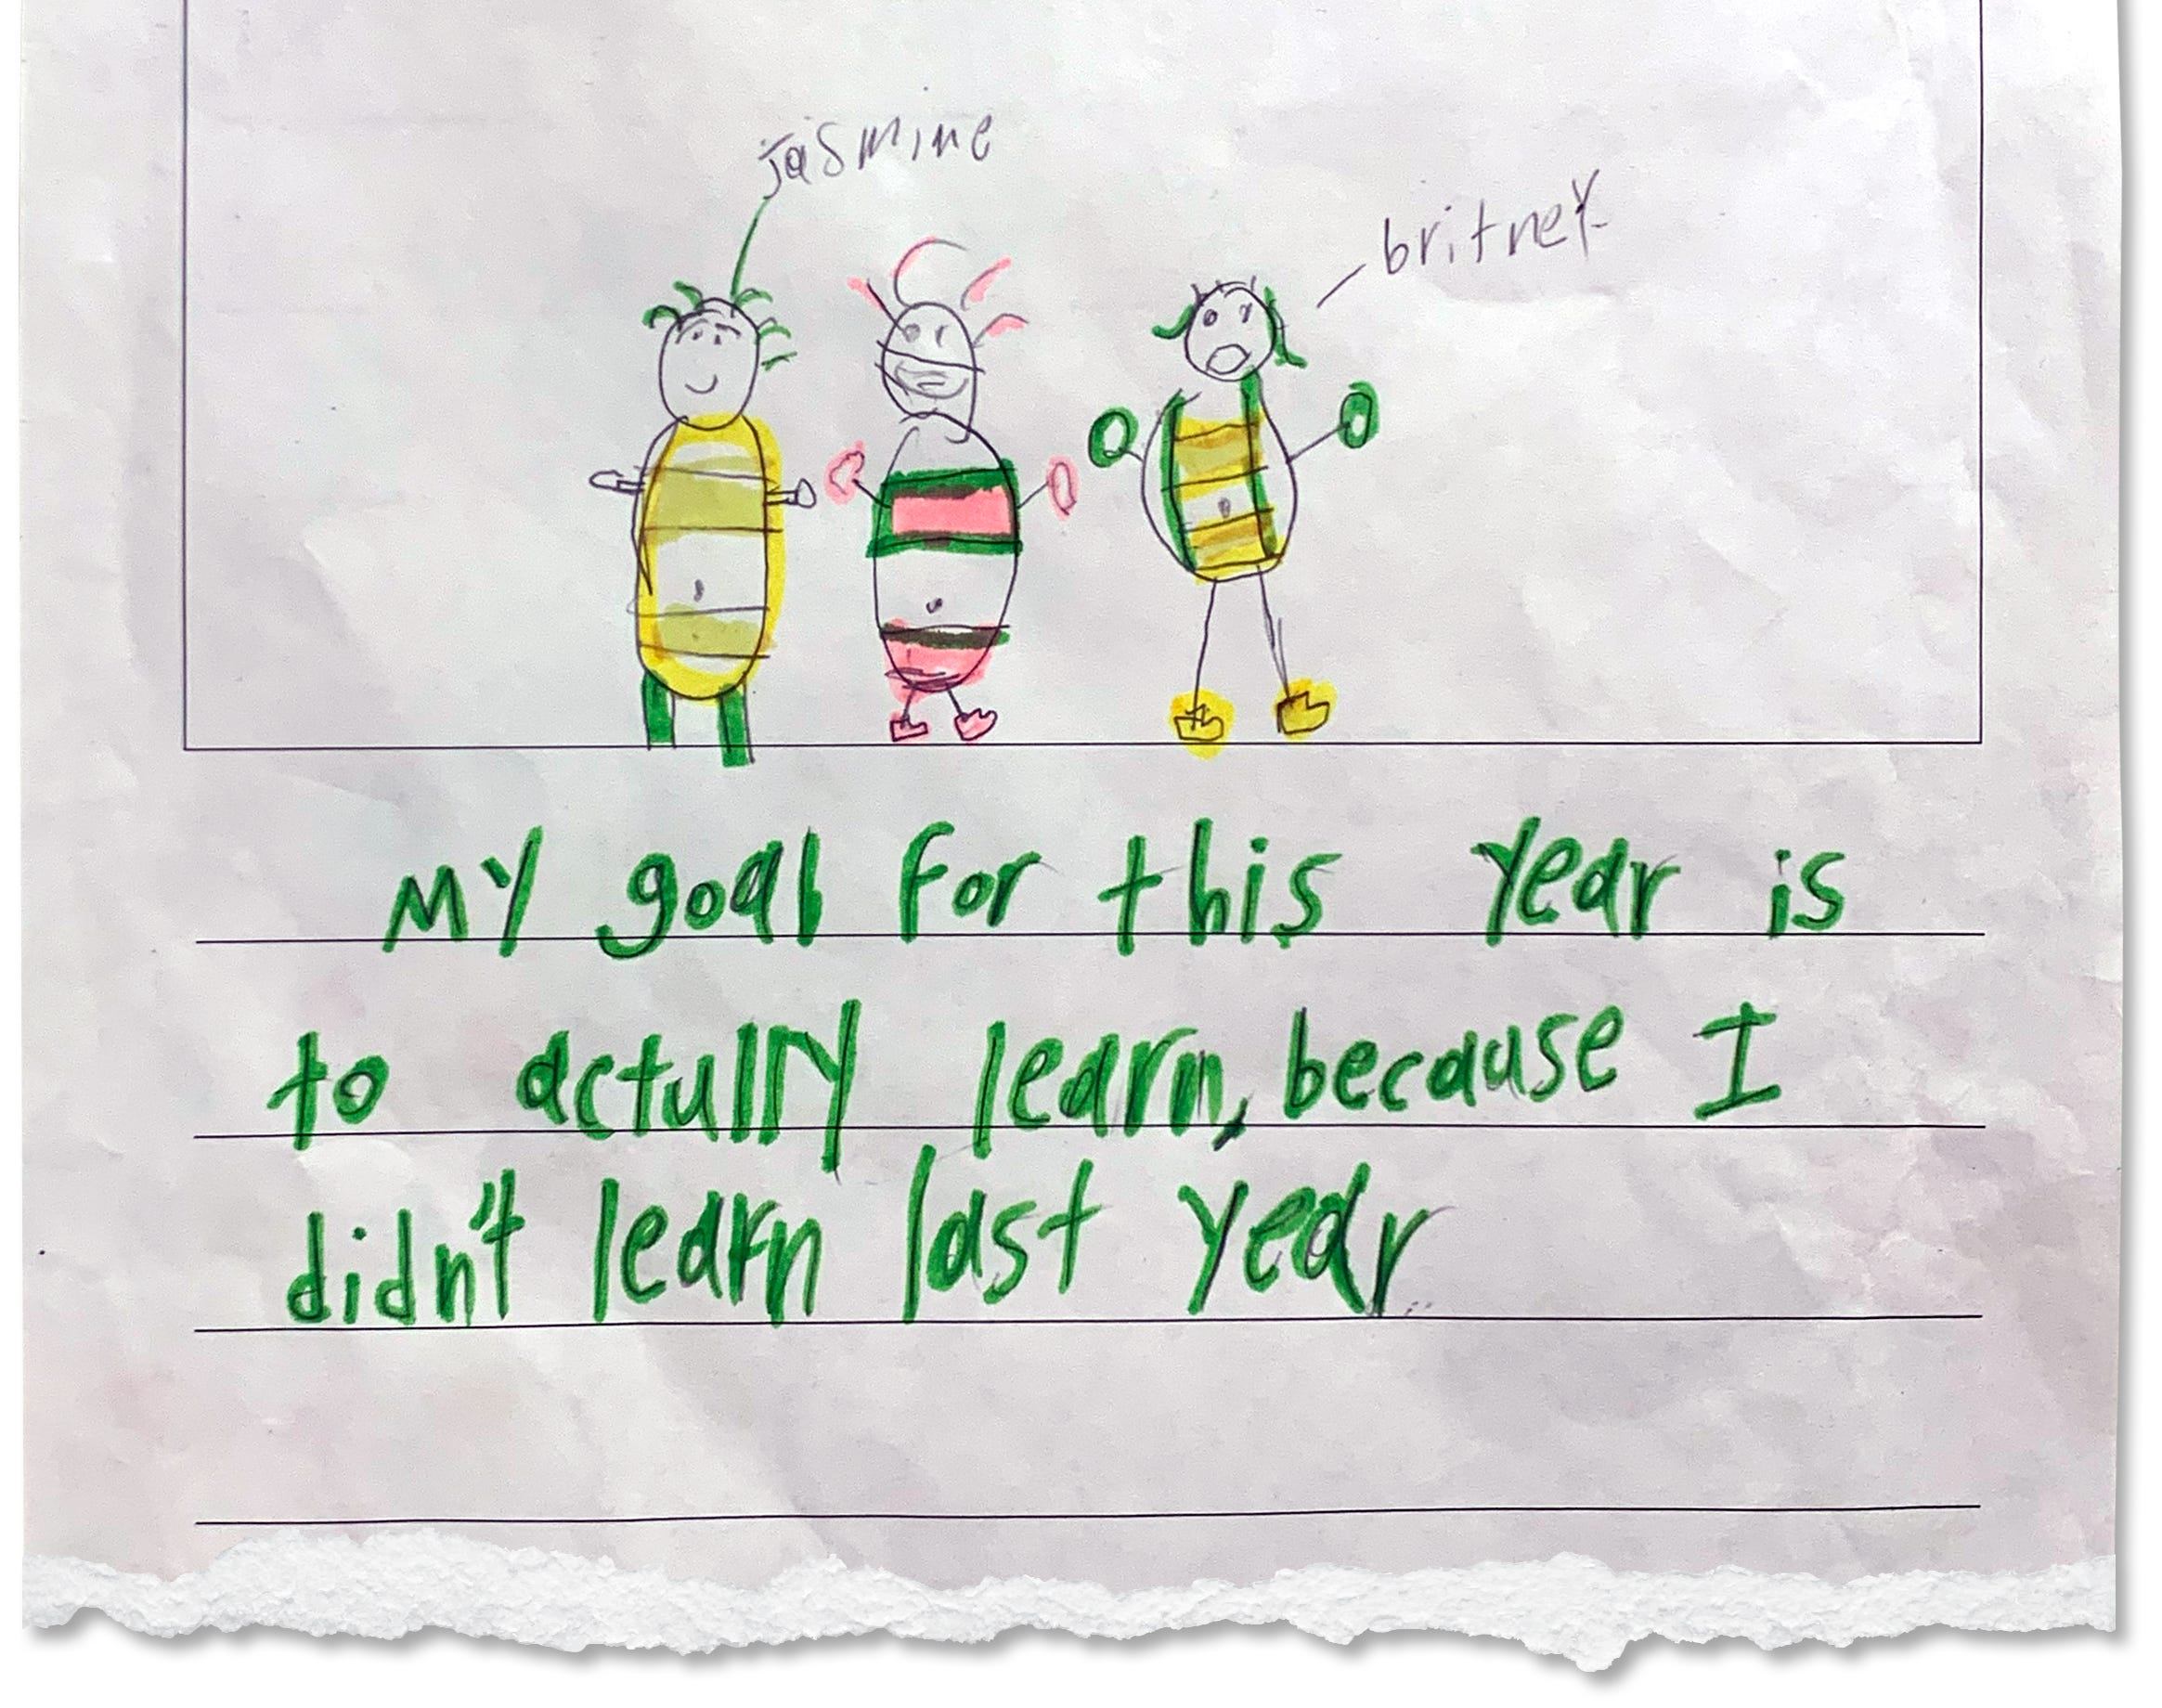 jasmine
britney
My goal for this year is
to actully learn, because I
didn't learn last year